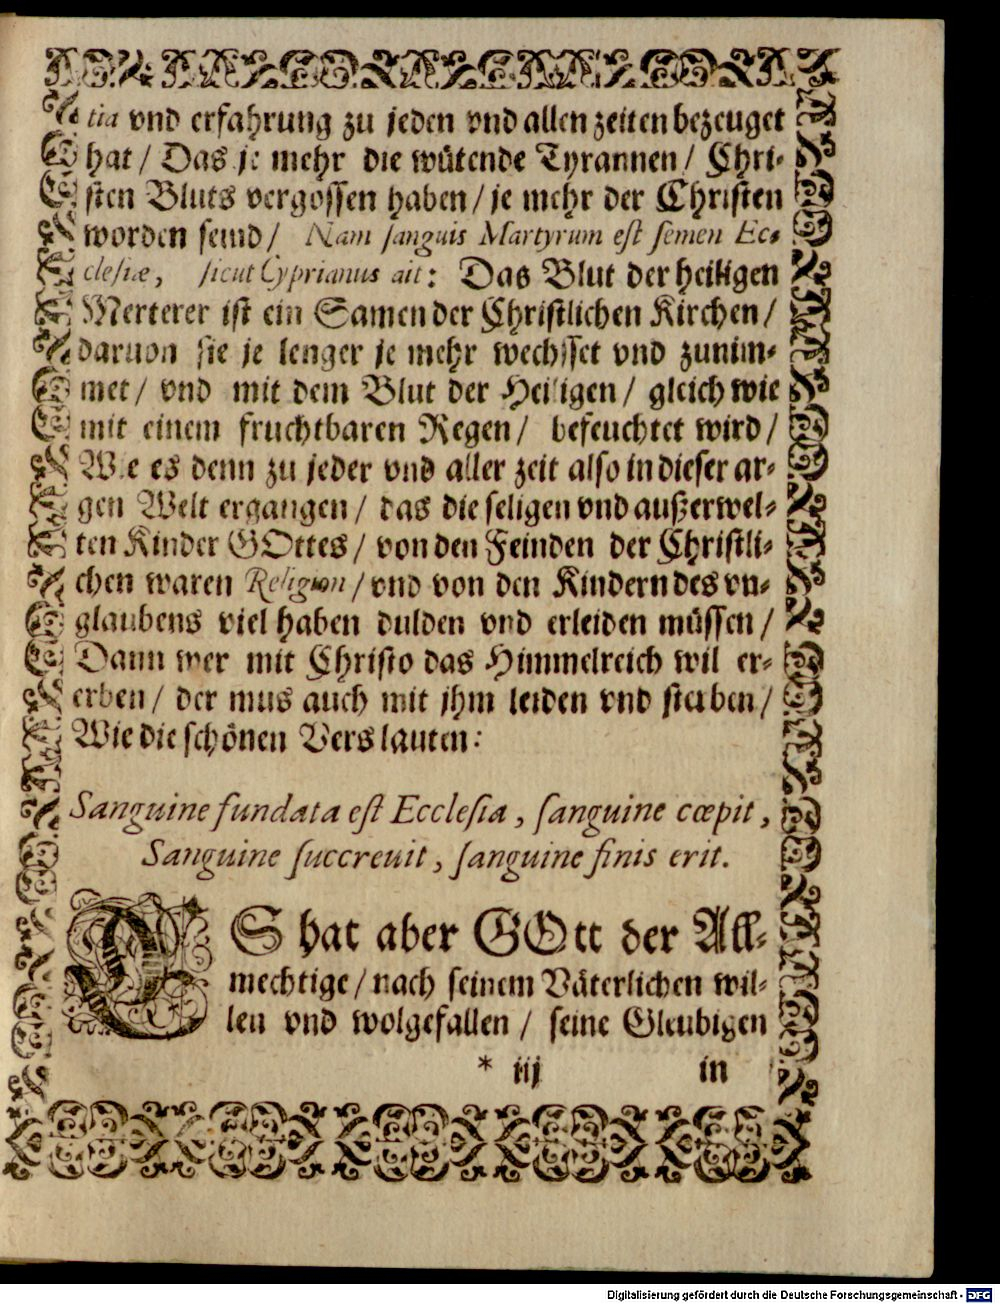 tia vnd erfahrung zu jeden vnd allen zeiten bezeuget
hat / Das je mehr die wütende Tyrannen / Chri-
sten Bluts vergossen haben / je mehr der Christen
worden seind / Nam sanguis Martyrum est semen Ec-
clesiæ, sicut Cyprianus ait: Das Blut der heiligen
Merterer ist ein Samen der Christlichen Kirchen /
daruon sie je lenger je mehr wechsset vnd zunim-
met / vnd mit dem Blut der Heiligen / gleich wie
mit einem fruchtbaren Regen / befeuchtet wird /
Wie es denn zu jeder vnd aller zeit also in dieser ar-
gen Welt ergangen / das die seligen vnd außerwel-
ten Kinder GOttes / von den Feinden der Christli-
chen waren Religion / vnd von den Kindern des vn-
glaubens viel haben dulden vnd erleiden müssen /
Dann wer mit Christo das Himmelreich wil er-
erben / der mus auch mit jhm leiden vnd sterben /
Wie die schönen Vers lauten:
Sanguine fundata est Ecclesia, sanguine cœpit,
Sanguine succreuit, sanguine finis erit.
ES hat aber GOtt der All-
mechtige / nach seinem Väterlichen wil-
len vnd wolgefallen / seine Gleubigen
* iij in
Digitalisierung gefördert durch die Deutsche Forschungsgemeinschaft - DFG